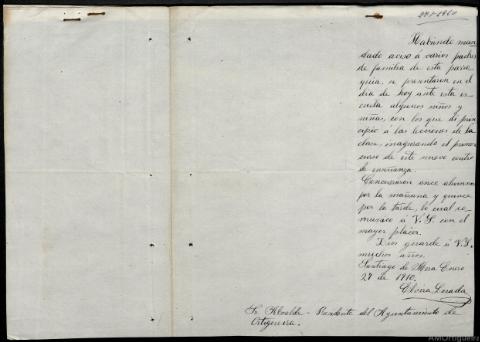 Habiendo man-
dado aviso á varios padres
de familia de esta parro-
quia, se presentaron en el
día de hoy ante esta es-
cuela algunos niños y
niñas, con los que di prin-
cipio a las lecciones de la
clase, inagurando el primer
curso de este nuevo centro
de enseñanza.
Concurrieron once alumnos
por la mañana y quince
por la tarde, lo cual co-
munico á V. S. con el
mayor placer.
Dios guarde á V. S.
muchos años.
Santiago de Mera Enero
27 de 1910.
Elvira Losada
Sr. Alcalde-Presidente del Ayuntamiento de
Ortigueira.
AMOrtigueira